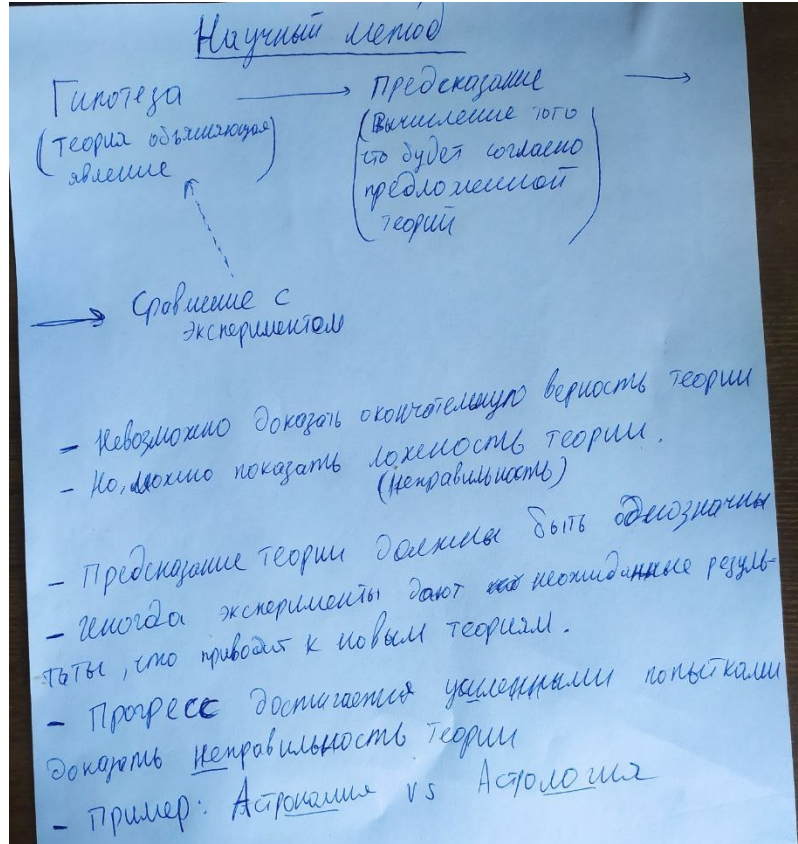 Научный метод
Гипотеза → Предсказание →
(теория объясняющая
явление)
(Вычисление того
что будет согласно
предложенной
теорий)
→ Сравнение с
экспериментом
- Невозможно доказать окончательную верность теории
- Но, можно показать ложность теории.
(неправильность)
- Предсказание теории должны быть однозначны
- Иногда эксперименты дают неожиданные резуль-
таты, что приводит к новым теориям.
- Прогресс достигается усиленными попытками
доказать неправильность теории
- Пример: Астрономия vs Астрология